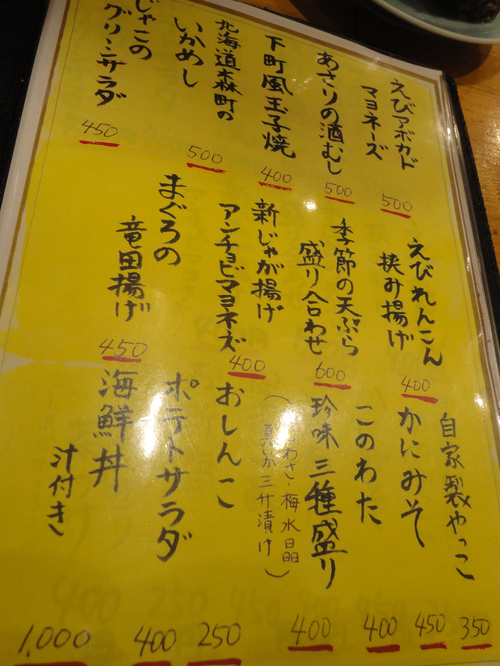 えびアボカド
マヨネーズ
500
あさりの酒むし
500
下町風玉子焼
400
北海道森町の
いかめし
500
じゃこの
グリーンサラダ
450
えびれんこん
挟み揚げ
400
季節の天ぷら
盛り合わせ
600
新じゃが揚げ
アンチョビマヨネーズ
400
まぐろの
竜田揚げ
450
自家製やっこ
350
かにみそ
450
このわた
400
珍味三種盛り
わさ・梅水晶
真いか三升漬け
400
おしんこ
250
ポテトサラダ
400
海鮮丼
汁付き
1,000